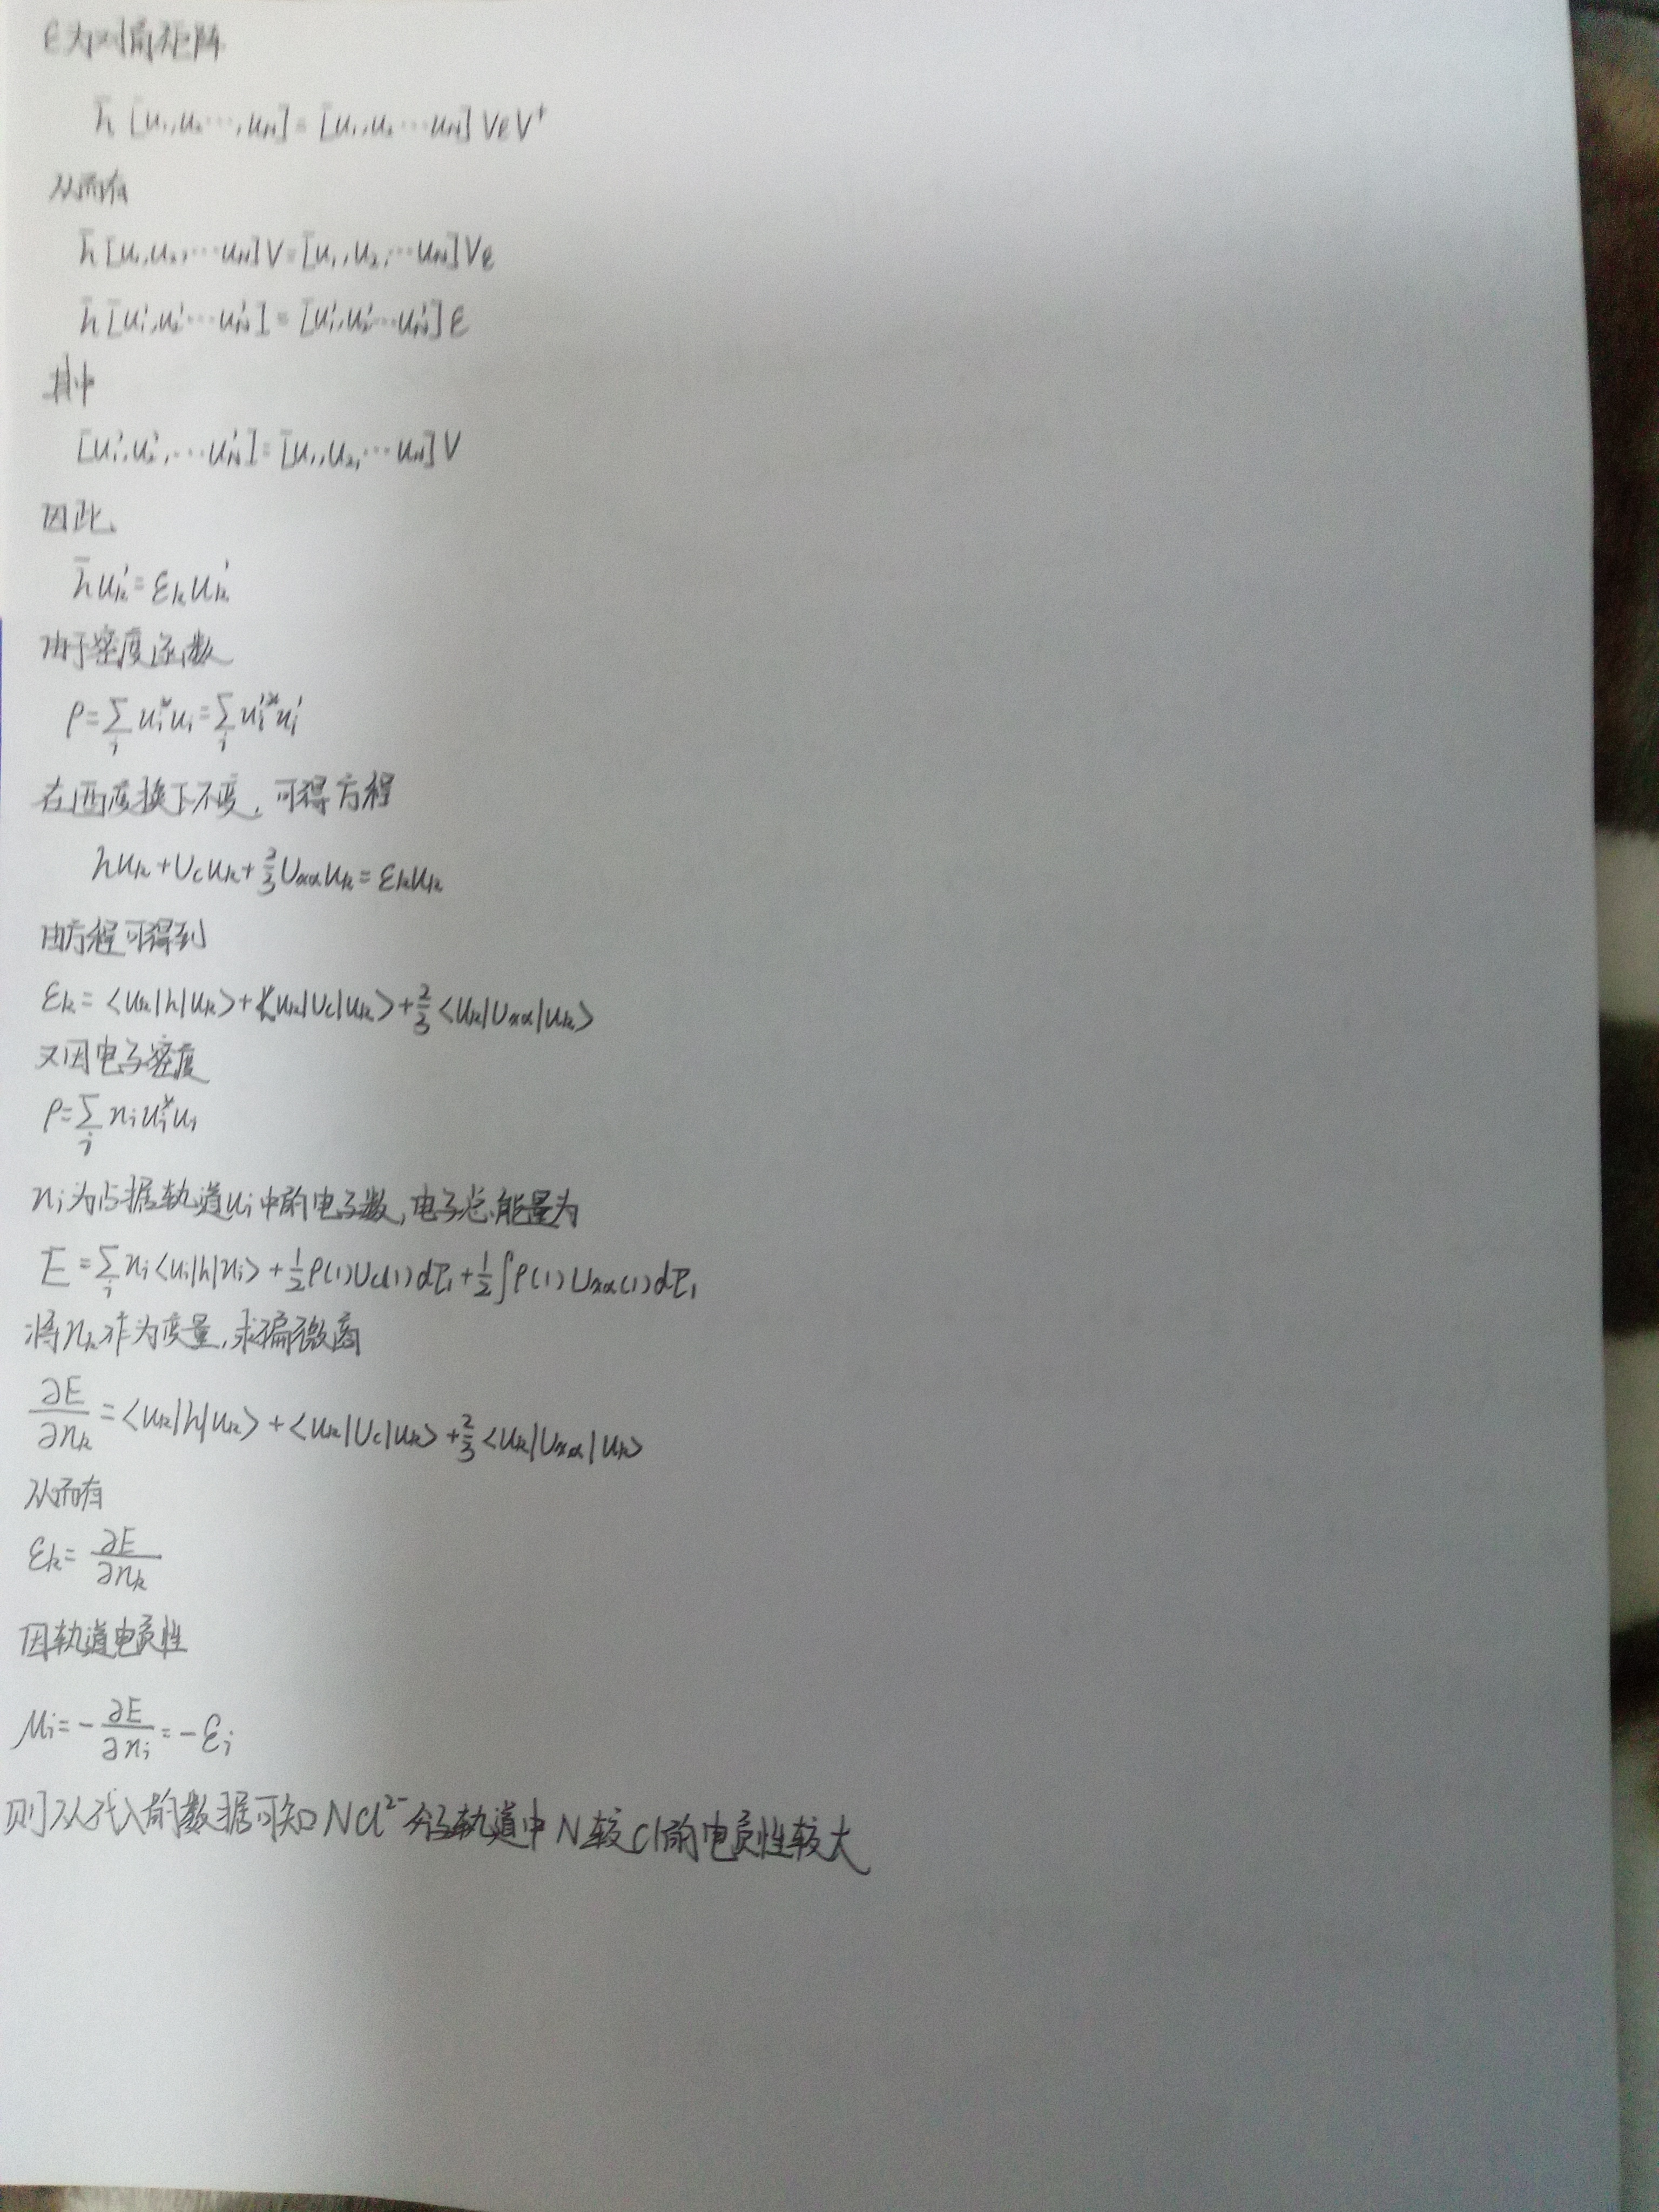 ε为对角矩阵
h̄[u₁,u₂…,u_N]=[u₁,u₂…u_N]VεV⁺
从而有
h̄[u₁,u₂,…u_N]V=[u₁,u₂,…u_N]Vε
h̄[u₁',u₂'…u_N']=[u₁',u₂'…u_N']ε
其中
[u₁',u₂',…u_N']=[u₁,u₂,…u_N]V
因此
h̄u_k'=ε_k u_k'
由于密度函数
ρ=∑_i u_i*u_i=∑_i u_i'*u_i'
在酉变换下不变,可得方程
hu_k+U_c u_k+2/3 U_xα u_k=ε_k u_k
由方程可得到
ε_k=<u_k|h|u_k>+<u_k|U_c|u_k>+2/3<u_k|U_xα|u_k>
又因电子密度
ρ=∑_i n_i u_i*u_i
n_i为占据轨道u_i中的电子数,电子总能量为
E=∑_i n_i<u_i|h|n_i>+1/2ρ(1)U_c(1)dτ₁+1/2∫ρ(1)U_xα(1)dτ₁
将n_k作为变量,求偏微商
∂E/∂n_k=<u_k|h|u_k>+<u_k|U_c|u_k>+2/3<u_k|U_xα|u_k>
从而有
ε_k=∂E/∂n_k
因轨道电负性
μ_i=-∂E/∂n_i=-ε_i
则从代入的数据可知NCl²⁻分子轨道中N较Cl的电负性较大